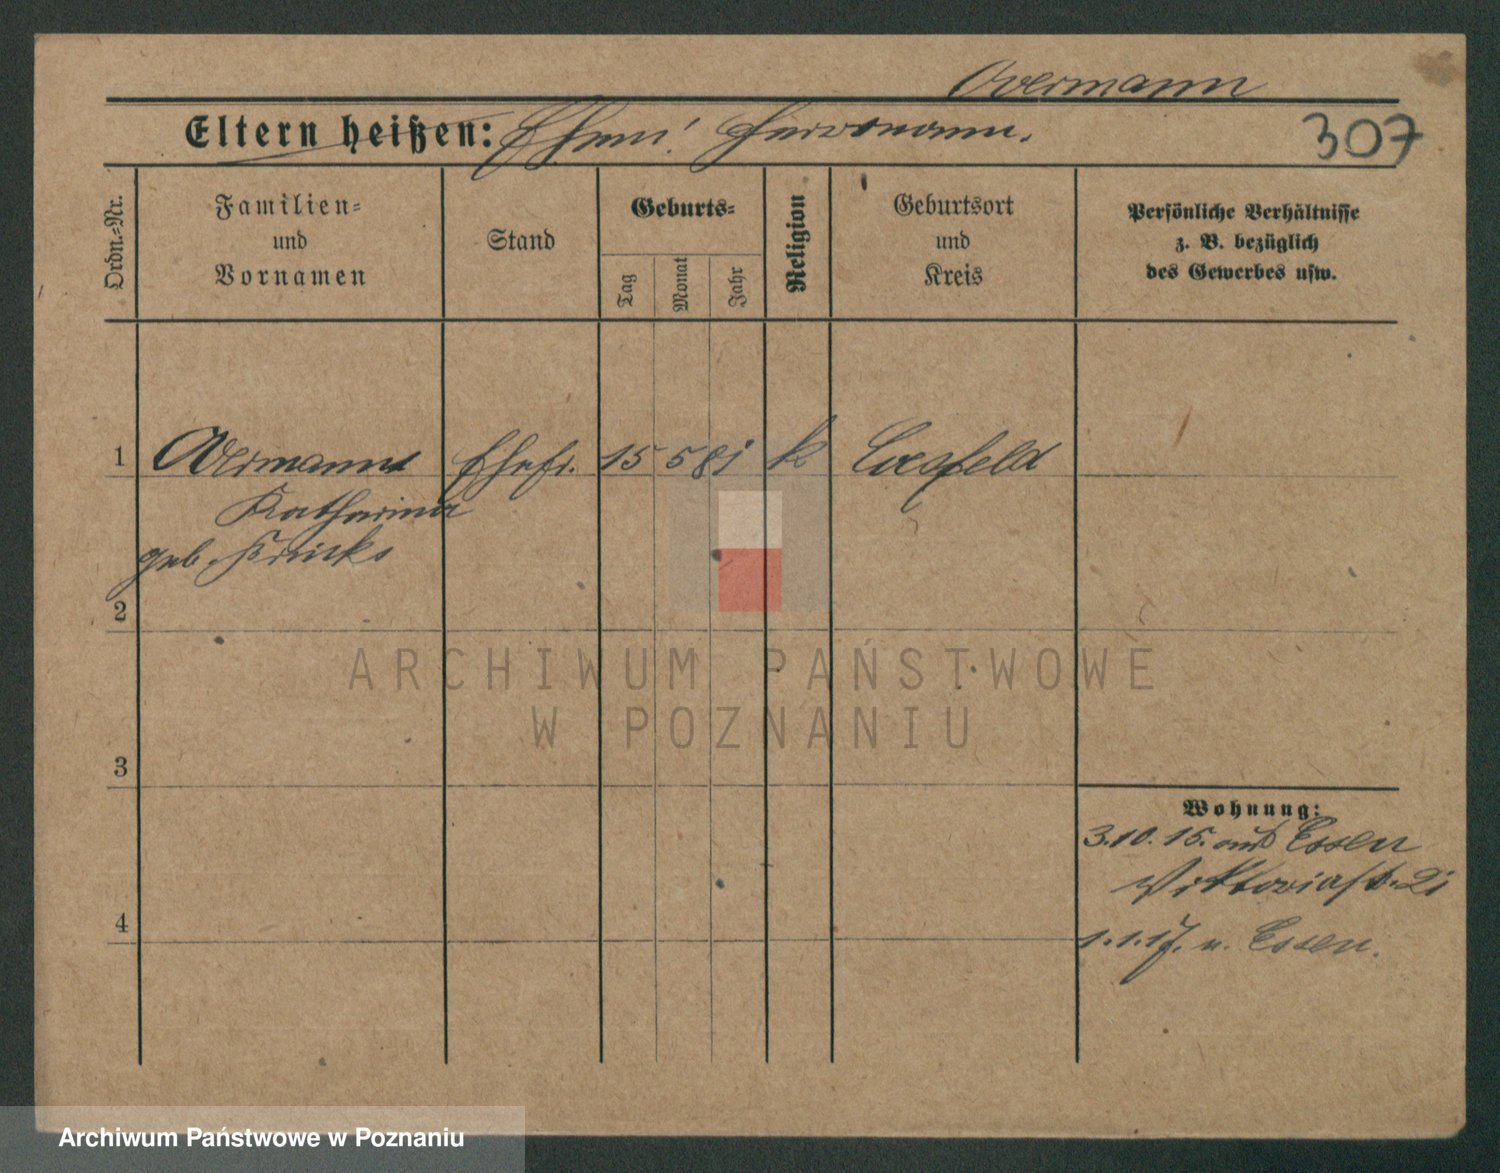 Overmann
Eltern heißen: Ehem! Herrmann.
307
Ordn.-Nr.
Familien-
und
Vornamen
Stand
Geburts-
Tag
Monat
Jahr
Religion
Geburtsort
und
Kreis
Persönliche Verhältnisse
z. B. bezüglich
des Gewerbes usw.
1 Overmann Ehefr. 15 5 81 k Coesfeld
Katharina
geb.
2
3
4
Wohnung:
3.10.15. aus Essen
Viktoriast. 21
1.1.17. n. Essen.
ARCHIWUM PAŃSTWOWE
W POZNANIU
Archiwum Państwowe w Poznaniu